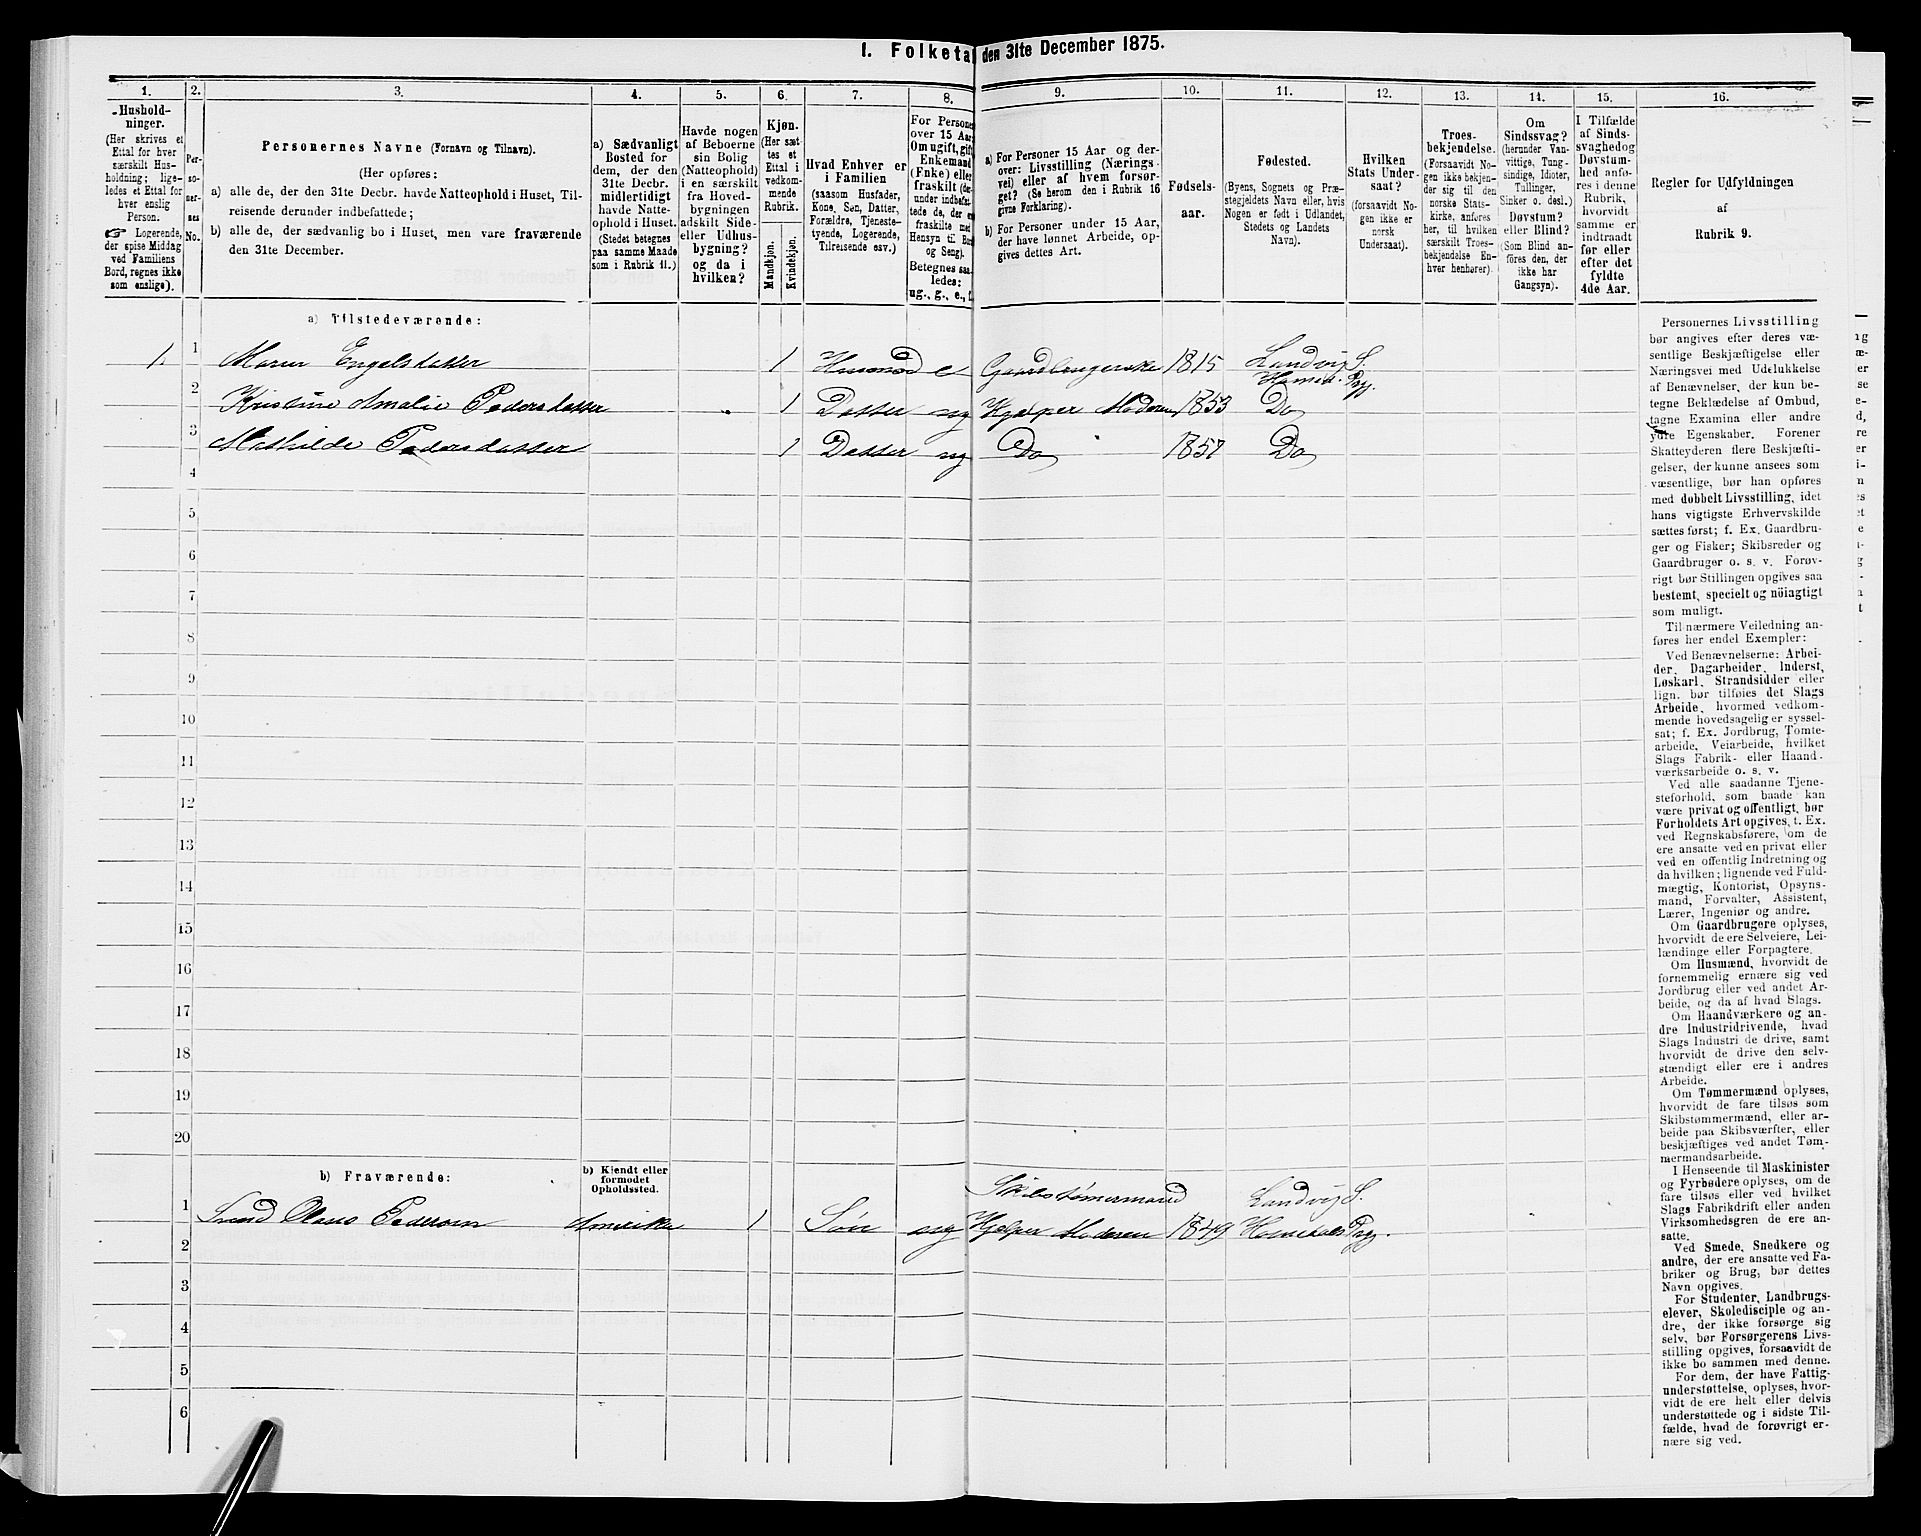 I. Folketal den 31te December 1875.
1. 2. 3. 4. 5. 6. 7. 8. 9. 10. 11. 12. 13. 14. 15. 16.
Hushold-
ninger.
(Her skrives et
Ettal for hver
særskilt Hus-
holdning; lige-
ledes et Ettal for
hver enslig
Person.
☞ Logerende,
der spise Middag
ved Familiens
Bord, regnes ikke
som enslige).
Per-
so-
ner-
nes
No.
Personernes Navne (Fornavn og Tilnavn).
(Her opføres:
a) alle de, der den 31te Decbr. havde Natteophold i Huset, Til-
reisende derunder indbefattede;
b) alle de, der sædvanlig bo i Huset, men vare fraværende
den 31te December.
a) Sædvanligt
Bosted for
dem, der den
31te Decbr.
midlertidigt
havde Natte-
ophold i Huset.
(Stedet betegnes
paa samme Maade
som i Rubrik 11.)
Havde nogen
af Beboerne
sin Bolig
(Natteophold)
i en særskilt
fra Hoved-
bygningen
adskilt Side-
eller Udhus-
bygning?
og da i
hvilken?
Kjøn.
(Her sæt-
tes et
Ettal i
vedkom-
mende
Rubrik.
Mandkjøn.
Kvindekjøn.
Hvad Enhver er
i Familien
(saasom Husfader,
Kone, Søn, Datter,
Forældre, Tjeneste-
tyende, Logerende,
Tilreisende osv.)
For Personer
over 15 Aar:
Om ugift, gift,
Enkemand
(Enke) eller
fraskilt
Betegnes saa-
ledes:
ug., g., e., f.
a) For Personer 15 Aar og der-
over: Livsstilling (Nærings-
vei) eller af hvem forsør-
get? (Se herom den i Rubrik 16
givne Forklaring).
b) For Personer under 15 Aar,
der have lønnet Arbeide, op-
gives dettes Art.
Fødsels-
aar.
Fødested.
(Byens, Sognets og Præ-
stegjeldets Navn eller, hvis
Nogen er født i Udlandet,
Stedets og Landets
Navn).
Hvilken
Stats Under-
saat?
(forsaavidt No-
gen ikke er
norsk
Undersaat).
Troes-
bekjendelse.
(Forsaavidt No-
gen ikke bekjen-
der sig til den
norske Stats-
kirke, anføres
her, til hvilken
særskilt Troes-
bekjendelse En-
hver henhører).
Om
Sindssvag?
(herunder Van-
vittige, Tung-
sindige, Idioter,
Tullinger,
Sinker o. desl.)
Døvstum?
eller Blind?
(Som Blind an-
føres den, der
ikke har
Gangsyn).
I Tilfælde
af Sinds-
svaghed og
Døvstum-
hed anfø-
res i denne
Rubrik,
hvorvidt
samme er
indtraadt
før eller
efter det
fyldte
4de Aar.
Regler for Udfyldningen
af
Rubrik 9.
a) Tilstedeværende:
1. 1 Maren Engelsdatter 1 Husmod e Gaardbrugerske 1815 Landvig S.
Homed. Pgj.
2 Kristine Amalie Pedersdatter 1 Datter ug Hjelper Moderen 1853 Do
3 Mathilde Pedersdatter 1 Datter ug Do 1857 Do
4
5
6
7
8
9
10
11
12
13
14
15
16
17
18
19
20
b) Fraværende:
b) Kjendt eller
formodet
Opholdssted.
Skibstømermand Landvig S.
1 Svend Olaus Pederson Amerika 1 Søn ug Hjelper Moderen 1849 Homedals Pgj.
2
3
4
5
6
Personernes Livsstilling
bør angives efter deres væ-
sentlige Beskjæftigelse eller
Næringsvei med Udelukkelse
af Benævnelser, der kun be-
tegne Beklædelse af Ombud,
tagne Examina eller andre
ydre Egenskaber. Forener
Skatteyderen flere Beskjæfti-
gelser, der kunne ansees som
væsentlige, bør han opføres
med dobbelt Livsstilling, idet
hans vigtigste Erhvervskilde
sættes først; f. Ex. Gaardbru-
ger og Fisker; Skibsreder og
Gaardbruger o. s. v. Forøv-
rigt bør Stillingen opgives saa
bestemt, specielt og nöiagtigt
som muligt.
Til nærmere Veiledning an-
føres her endel Exempler:
Ved Benævnelserne: Arbei-
der, Dagarbeider, Inderst,
Løskarl, Strandsidder eller
lign. bør tilføies det Slags
Arbeide, hvormed vedkom-
mende hovedsagelig er syssel-
sat; f. Ex. Jordbrug, Tomte-
arbeide, Veiarbeide, hvilket
Slags Fabrik- eller Haand-
værksarbeide o. s. v.
Ved alle saadanne Tjene-
steforhold, som baade kan
være privat og offentligt, bør
Forholdets Art opgives, t. Ex.
ved Regnskabsførere, om de
ere ansatte ved en privat eller
ved en offentlig Indretning og
da hvilken; lignende ved Fuld-
mægtig, Kontorist, Opsyns-
mand, Forvalter, Assistent,
Lærer, Ingeniør og andre.
Om Gaardbrugere oplyses,
hvorvidt de ere Selveiere, Lei-
lændinge eller Forpagtere.
Om Husmænd, hvorvidt de
fornemmelig ernære sig ved
Jordbrug eller ved andet Ar-
beide, og da af hvad Slags.
Om Haandværkere og an-
dre Industridrivende, hvad
Slags Industri de drive, samt
hvorvidt de drive den selv-
stændigt eller ere i andres
Arbeide.
Om Tømmermænd oplyses,
hvorvidt de fare tilsøs som
Skibstømmermænd, eller ar-
beide paa Skibsværfter, eller
beskjæftiges ved andet Tøm-
mermandsarbeide.
I Henseende til Maskinister
og Fyrbødere oplyses, om de
fare tilsøs eller ved hvilket
Slags Fabrikdrift eller anden
Virksomhedsgren de ere an-
satte.
Ved Smede, Snedkere og
andre, der ere ansatte ved Fa-
briker og Brug, bør dettes
Navn opgives.
For Studenter, Landbrugs-
elever, Skoledisciple og an-
dre, der ikke forsørge sig
selv, bør Forsørgerens Livs-
stilling opgives, forsaavidt de
ikke bo sammen med denne.
For dem, der have Fattig-
understøttelse, oplyses, hvor-
vidt de ere helt eller delvis
understøttede og i sidste Til-
fælde, hvad de forøvrigt er-
nære sig ved.